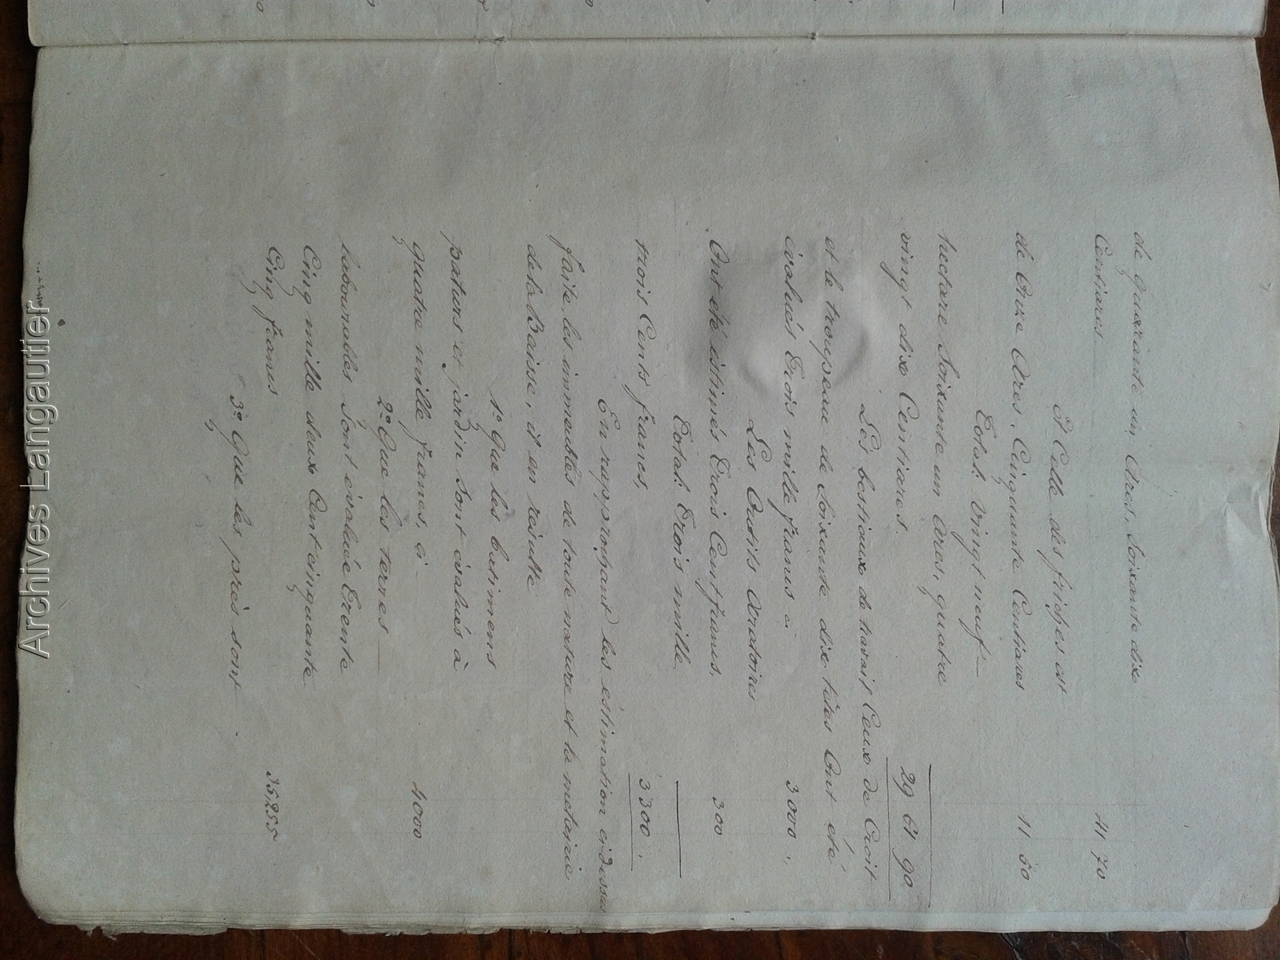 de quarante un Ares, soixante dix
Centiares 41 70
Et Celle des friches est
de Onze Ares, Cinquante Centiares 11 50
Total: Vingt neuf
hectare Soixante un Ares, quatre
vingt dix Centiares. 29 61 90
Les bestiaux de travail Ceux de Croit
et le troupeau de soixante dix têtes Ont été
évalués Trois mille francs ci 3000.
Les Outils Aratoires
Ont été estimés Trois Cent francs, 300
Total: Trois mille
trois Cents francs, 3300.
En rapprochant les éstimation cidessus
faite les immeubles de toute nature et la metairie
de la Baisse, il en résulte
1° Que les batimens
paturs et jardin sont évalués à
quatre mille francs, ci 4000
2° Que les terres
labourables Sont évaluée Trente
Cinq mille deux Cent cinquante
Cinq francs 35255
3° Que les près sont
Archives Langautier